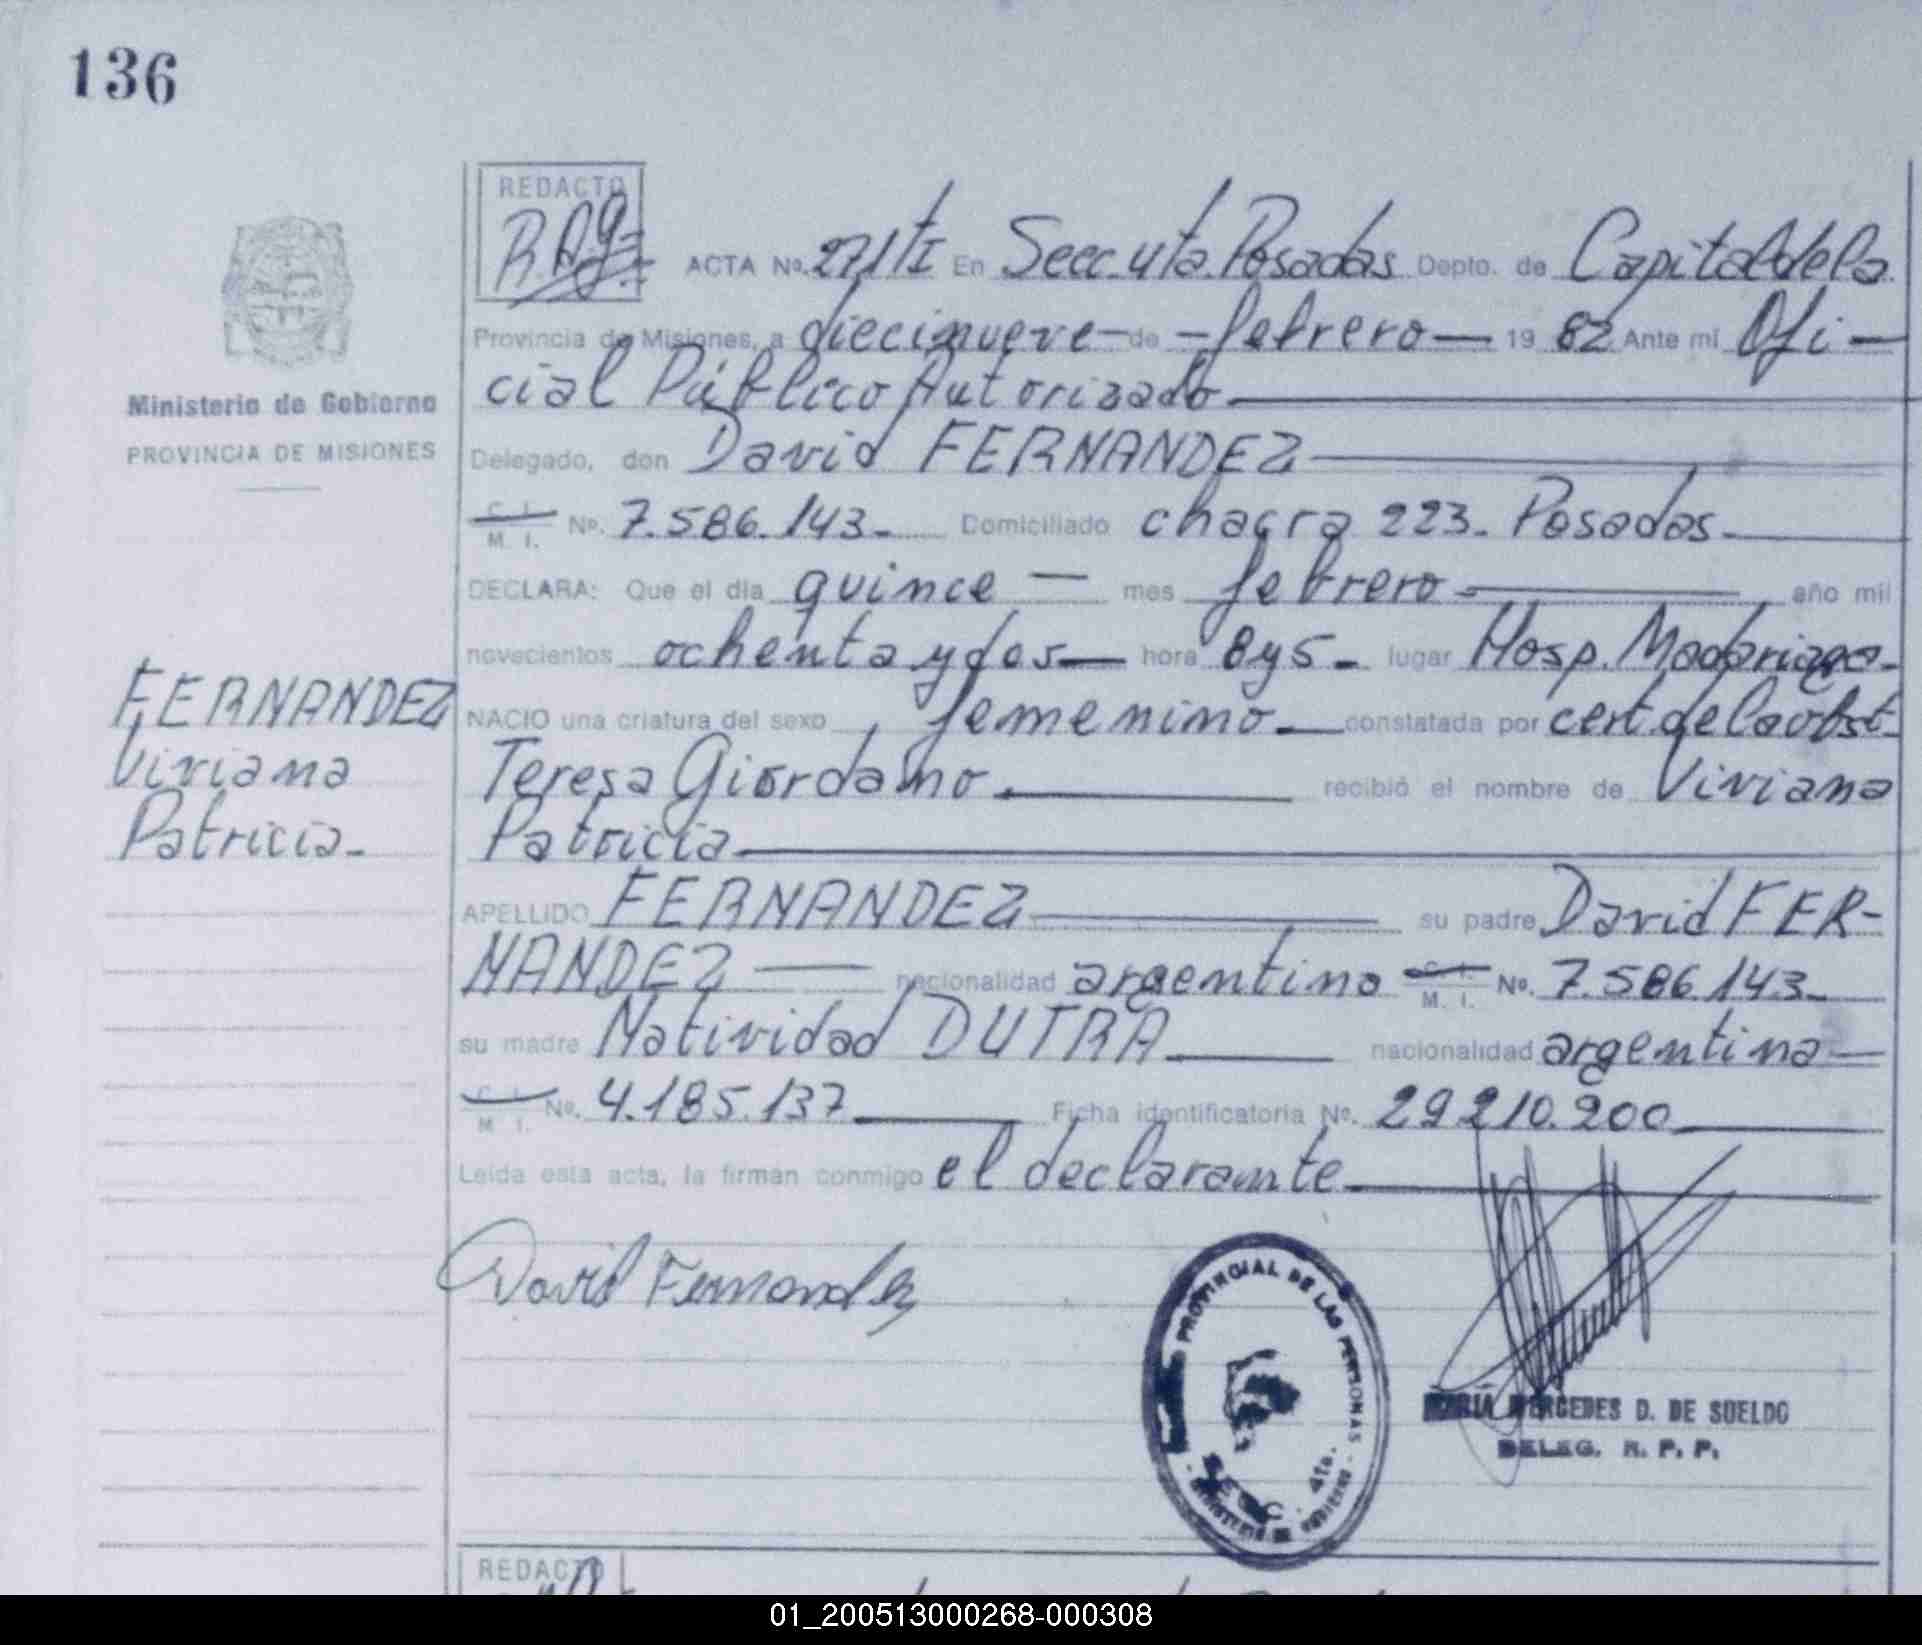 136
REDACTO
ACTA Nº 271 TI En Secc. 4ta. Posadas Depto. de Capital de la
Provincia de Misiones, a diecinueve — de — febrero — 19 82 Ante mi Ofi-
cial Público Autorizado
Ministerio de Gobierno
PROVINCIA DE MISIONES
Delegado, don David FERNANDEZ
C. I.
M. I. Nº. 7.586.143.- Domiciliado chacra 223. Posadas.
DECLARA: Que el dia quince — mes febrero — año mil
novecientos ochenta y dos — hora 8 y 5 - lugar Hosp. Madariaga-
FERNANDEZ
Viviana
Patricia.-
NACIO una criatura del sexo femenino. — constatada por cert. de la obst.
Teresa Giordano. — recibió el nombre de Viviana
Patricia
APELLIDO FERNANDEZ — su padre David FER-
NANDEZ — nacionalidad argentino C. I.
M. I. Nº. 7.586.143.-
su madre Natividad DUTRA — nacionalidad argentina —
C. I.
M. I. Nº. 4.185.137 — Ficha identificatoria Nº. 29.210.200
Leida esta acta, la firman conmigo el declarante.
David Fernandez
PROVINCIAL DE LAS PERSONAS
SECC. 4ta.
MINISTERIO DE GOBIERNO
MARÍA MERCEDES D. DE SUELDO
DELEG. R. P. P.
REDACTO
01_200513000268-000308